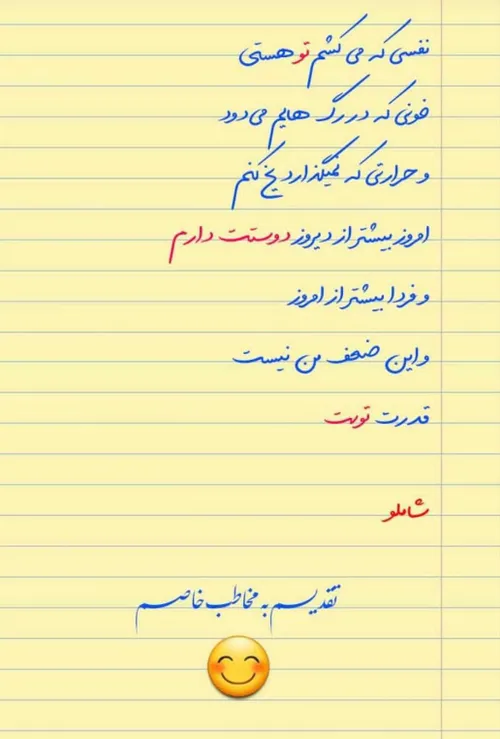 نفسی که می کشم تو هستی
خونی که در رگ هایم می دود
و حرارتی که نمیگذارد یخ کنم
امروز بیشتر از دیروز دوستت دارم
و فردا بیشتر از امروز
و این ضعف من نیست
قدرت توست
شاملو
تقدیسم به مخاطب خاصم